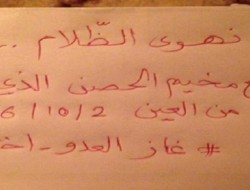 نهوى الظّلام ..
مخيم الحصن الذي
من العين 2/10/6
# غاز العدو - اح